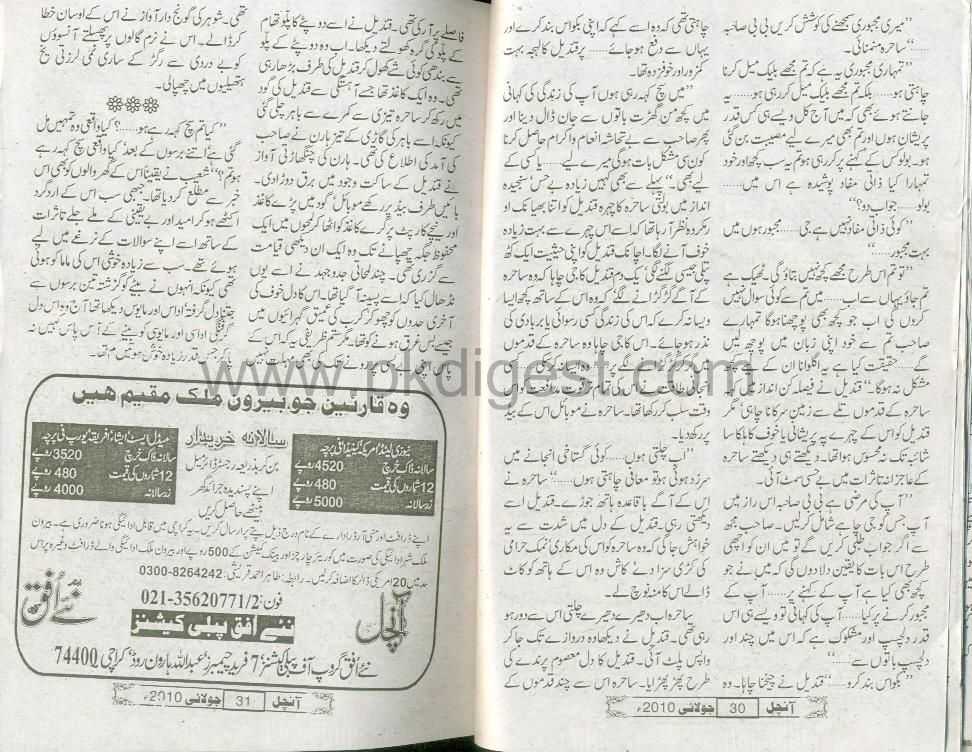 ”میری مجبوری سمجھنے کی کوشش کریں بی بی صاحبہ
.....“ ساحرہ منمنائی۔
”تمہاری مجبوری یہ ہے کہ تم مجھے بلیک میل کرنا
چاہتی ہو..... بلکہ تم مجھے بلیک میل کر رہی ہو..... یہ
جانتے ہوئے بھی کہ میں آج کل ویسے ہی کس قدر
پریشان ہوں اور تم بھی میرے لیے مصیبت بن گئی
ہو۔ بولو کس کے کہنے پر کر رہی ہو تم یہ سب کچھ اور خود
تمہارا کیا ذاتی مفاد پوشیدہ ہے اس میں.....
بولو..... جواب دو؟“
”کوئی ذاتی مفاد نہیں ہے جی..... مجبور ہوں میں
بہت مجبور.....“
”تو تم اس طرح مجھے کچھ نہیں بتاؤ گی ٹھیک ہے
تم جاؤ یہاں سے اب..... میں تم سے کوئی سوال نہیں
کروں گی اب جو کچھ بھی پوچھنا ہوگا تمہارے
صاحب تم سے خود اپنی زبان میں پوچھ لیں
گے..... حقیقت کیا ہے یہ اگلوانا ان کے لیے کچھ
مشکل نہ ہوگا۔“ قندیل نے فیصلہ کن انداز میں
ساحرہ کے قدموں تلے سے زمین سرکانا چاہی مگر
قندیل کو اس کے چہرے پہ پریشانی یا خوف کا ہلکا سا
شائبہ تک نہ محسوس ہوا تھا۔ دیکھتے ہی دیکھتے ساحرہ
کے عاجزانہ تاثرات میں بے حسی سمٹ آئی۔
”آپ کی مرضی ہے بی بی صاحبہ اس راز میں
آپ جس کو جی چاہے شامل کریں۔ صاحب مجھ
سے اگر جواب طلبی کریں گے تو میں ان کو اچھی
طرح اس بات کا یقین دلا دوں گی کہ میں نے جو
کچھ بھی کیا ہے آپ کے کہنے پر..... آپ کے
مجبور کرنے پر کیا..... آپ کی کہانی تو ویسے ہی اس
قدر دلچسپ اور مشکوک ہے کہ اس میں چند اور
دلچسپ باتوں سے.....“
”بکواس بند کرو.....“ قندیل نے چیخنا چاہا۔ وہ
چاہتی تھی کہ وہ اسے کہے کہ اپنی بکواس بند کرے اور
یہاں سے دفع ہو جائے..... پر قندیل کا لہجہ بہت
کمزور اور خوفزدہ تھا۔
”میں سچ کہہ رہی ہوں آپ کی زندگی کی کہانی
میں کچھ من گھڑت باتوں سے جان ڈال دینا اور
پھر صاحب سے بے تحاشہ انعام و اکرام حاصل کرنا
کون سی مشکل بات ہوگی میرے لیے..... یا کسی کے
لیے بھی۔“ پہلے سے بھی کہیں زیادہ بے حس سنجیدہ
انداز میں بولتی ساحرہ کا چہرہ قندیل کو اتنا بھیانک او
رمکروہ نظر آ رہا تھا کہ اسے اس چہرے سے بہت زیادہ
خوف آنے لگا۔ اچانک قندیل کو اپنی حیثیت ایک کٹھ
پتلی جیسی لگنے لگی۔ یک دم قندیل کا جی چاہا کہ وہ ساحرہ
کے آگے گڑگڑانے لگے کہ وہ اس کے ساتھ کچھ ایسا
ویسا نہ کرے کہ اس کی زندگی کسی رسوائی یا بربادی کی
نذر ہو جائے۔ اس کا جی چاہا وہ ساحرہ کے قدموں
انجانی طاقت نے اس کی تمام قوت مدافعت کو اس
وقت سلب کر رکھا تھا۔ ساحرہ نے موبائل اس کے بیڈ
پر رکھ دیا۔
”اب چلتی ہوں..... کوئی گستاخی انجانے میں
سرزد ہوئی ہو تو معافی چاہتی ہوں.....“ ساحرہ نے
اس کے آگے باقاعدہ ہاتھ جوڑے۔ قندیل اسے
دیکھتی رہی۔ قندیل کے دل میں شدت سے یہ
خواہش جاگی کہ وہ ساحرہ کو اس کی مکاری نمک حرامی
کی کڑی سزا دے کاش وہ اس کے ہاتھ کو کاٹ
ڈالے اس کا منہ نوچ لے۔
ساحرہ اب دھیرے دھیرے چلتی اس سے دور ہو
رہی تھی۔ قندیل نے دیکھا وہ دروازے تک جا کر
واپس پلٹ آئی۔ قندیل کا دل معصوم پرندے کی
طرح پھڑپھڑایا۔ ساحرہ اس سے چند قدموں کے
آنچل 30 جولائی 2010ء
فاصلے پر آ رکی تھی۔ قندیل نے اسے دوپٹے کا پلو تھام
کے پلو کی گرہ کھولتے دیکھا۔ اب وہ دوپٹے کے پلو
سے بندھی کوئی شے کھول کر قندیل کی طرف بڑھا رہی
تھی۔ وہ ایک کاغذ تھا جسے آہستگی سے قندیل کی گود
میں رکھ کر ساحرہ تیزی سے کمرے سے باہر چلی گئی
کیونکہ اسے باہر کی گاڑی کے تیز ہارن نے صاحب
کی آمد کی اطلاع کی تھی۔ ہارن کی چنگھاڑتی آواز
نے قندیل کے ساکت وجود میں برق دوڑا دی۔
بائیں طرف بیڈ پر رکھے موبائل، گود میں پڑے کاغذ
اور نیچے کارپٹ پر گرے کاغذ کو اٹھا کر لمحوں میں ایک
محفوظ جگہ چھپانے تک وہ ایک ان دیکھی قیامت
سے گزری تھی۔ چند لمحاتی جدوجہد نے اسے یوں
نڈھال کیا کہ اسے پسینہ آ گیا تھا۔ اس کا دل خوف کی
آخری حدوں کو چھو کر کرب کی عمیق گہرائیوں میں
جیسے بس غرق ہونے کو تھا۔ مگر ستم ظریفی یہ کہ اس کے
پاس اپنی بے بسی پر رونے تک کی بھی مہلت نہیں
تھی۔ شوہر کی گونج دار آواز نے اس کے اوسان خطا
کر ڈالے۔ اس نے نرم گالوں پر پھسلتے آنسوؤں
کو بے دردی سے رگڑ کے ساری نمی لرزتی یخ
ہتھیلیوں میں چھپا لی۔
❋❋❋
”کیا تم سچ کہہ رہے ہو.....؟ کیا واقعی وہ تمہیں مل
گئی ہے اتنے برسوں کے بعد کیا واقعی سچ کہہ رہے
ہو تم؟“ شعیب نے یقیناً اس کے گھر والوں کو بھی اس
خبر سے مطلع کر دیا تھا۔ جبھی سب اس کے ارد گرد
اکٹھے ہو کر امید اور بے یقینی کے ملے جلے تاثرات
کے ساتھ اسے اپنے سوالات کے نرغے میں لیے
ہوئے تھے۔ سب سے زیادہ خوشی اس کی ماما کو ہوئی
تھی کیونکہ انہوں نے بیٹے کو گزشتہ تین برسوں سے
جتنا دل گرفتہ اداس اور مایوس دیکھا تھا آج وہ اس دل
گرفتگی، اداسی اور مایوسی کو بیٹے کے آس پاس نہیں نہ
پا کر جس قدر زیادہ خوش ہوتیں کم تھا۔
www.pkdigest.com
وہ قارئین جو بیرون ملک مقیم ہیں
نیوزی لینڈ، امریکہ، کینیڈا فی پرچہ
سالانہ ڈاک خرچ 4520 روپے
12 شماروں کی قیمت 480 روپے
زرسالانہ 5000 روپے
سالانہ خریدار
بن کر بذریعہ رجسٹرڈ ائیر میل
اپنے پسندیدہ جرائد گھر
بیٹھے حاصل کریں
مڈل ایسٹ، ایشیا، افریقہ، یورپ فی پرچہ
سالانہ ڈاک خرچ 3520 روپے
12 شماروں کی قیمت 480 روپے
زرسالانہ 4000 روپے
اپنے ڈرافٹ اور منی آرڈر ادارے کے نام درج ذیل پتے پر ارسال کریں۔ یہ کراچی میں قابل ادائیگی ہونا ضروری ہے۔ بیرون
ملک شہر ادائیگی کی صورت میں کوریئر چارجز اور بینک کمیشن کے 500 روپے اور بیرون ملک ادائیگی والے ڈرافٹ وغیرہ پر اس
مد میں 20 امریکی ڈالر کا اضافہ کر لیں۔ رابطہ: طاہر احمد قریشی: 0300-8264242
فون: 021-35620771/2
آنچل
نئے اُفق
نئے افق پبلی کیشنز
نئے اُفق گروپ آف پبلی کیشنز 7 فرید چیمبرز، عبداللہ ہارون روڈ، کراچی 74400
آنچل 31 جولائی 2010ء